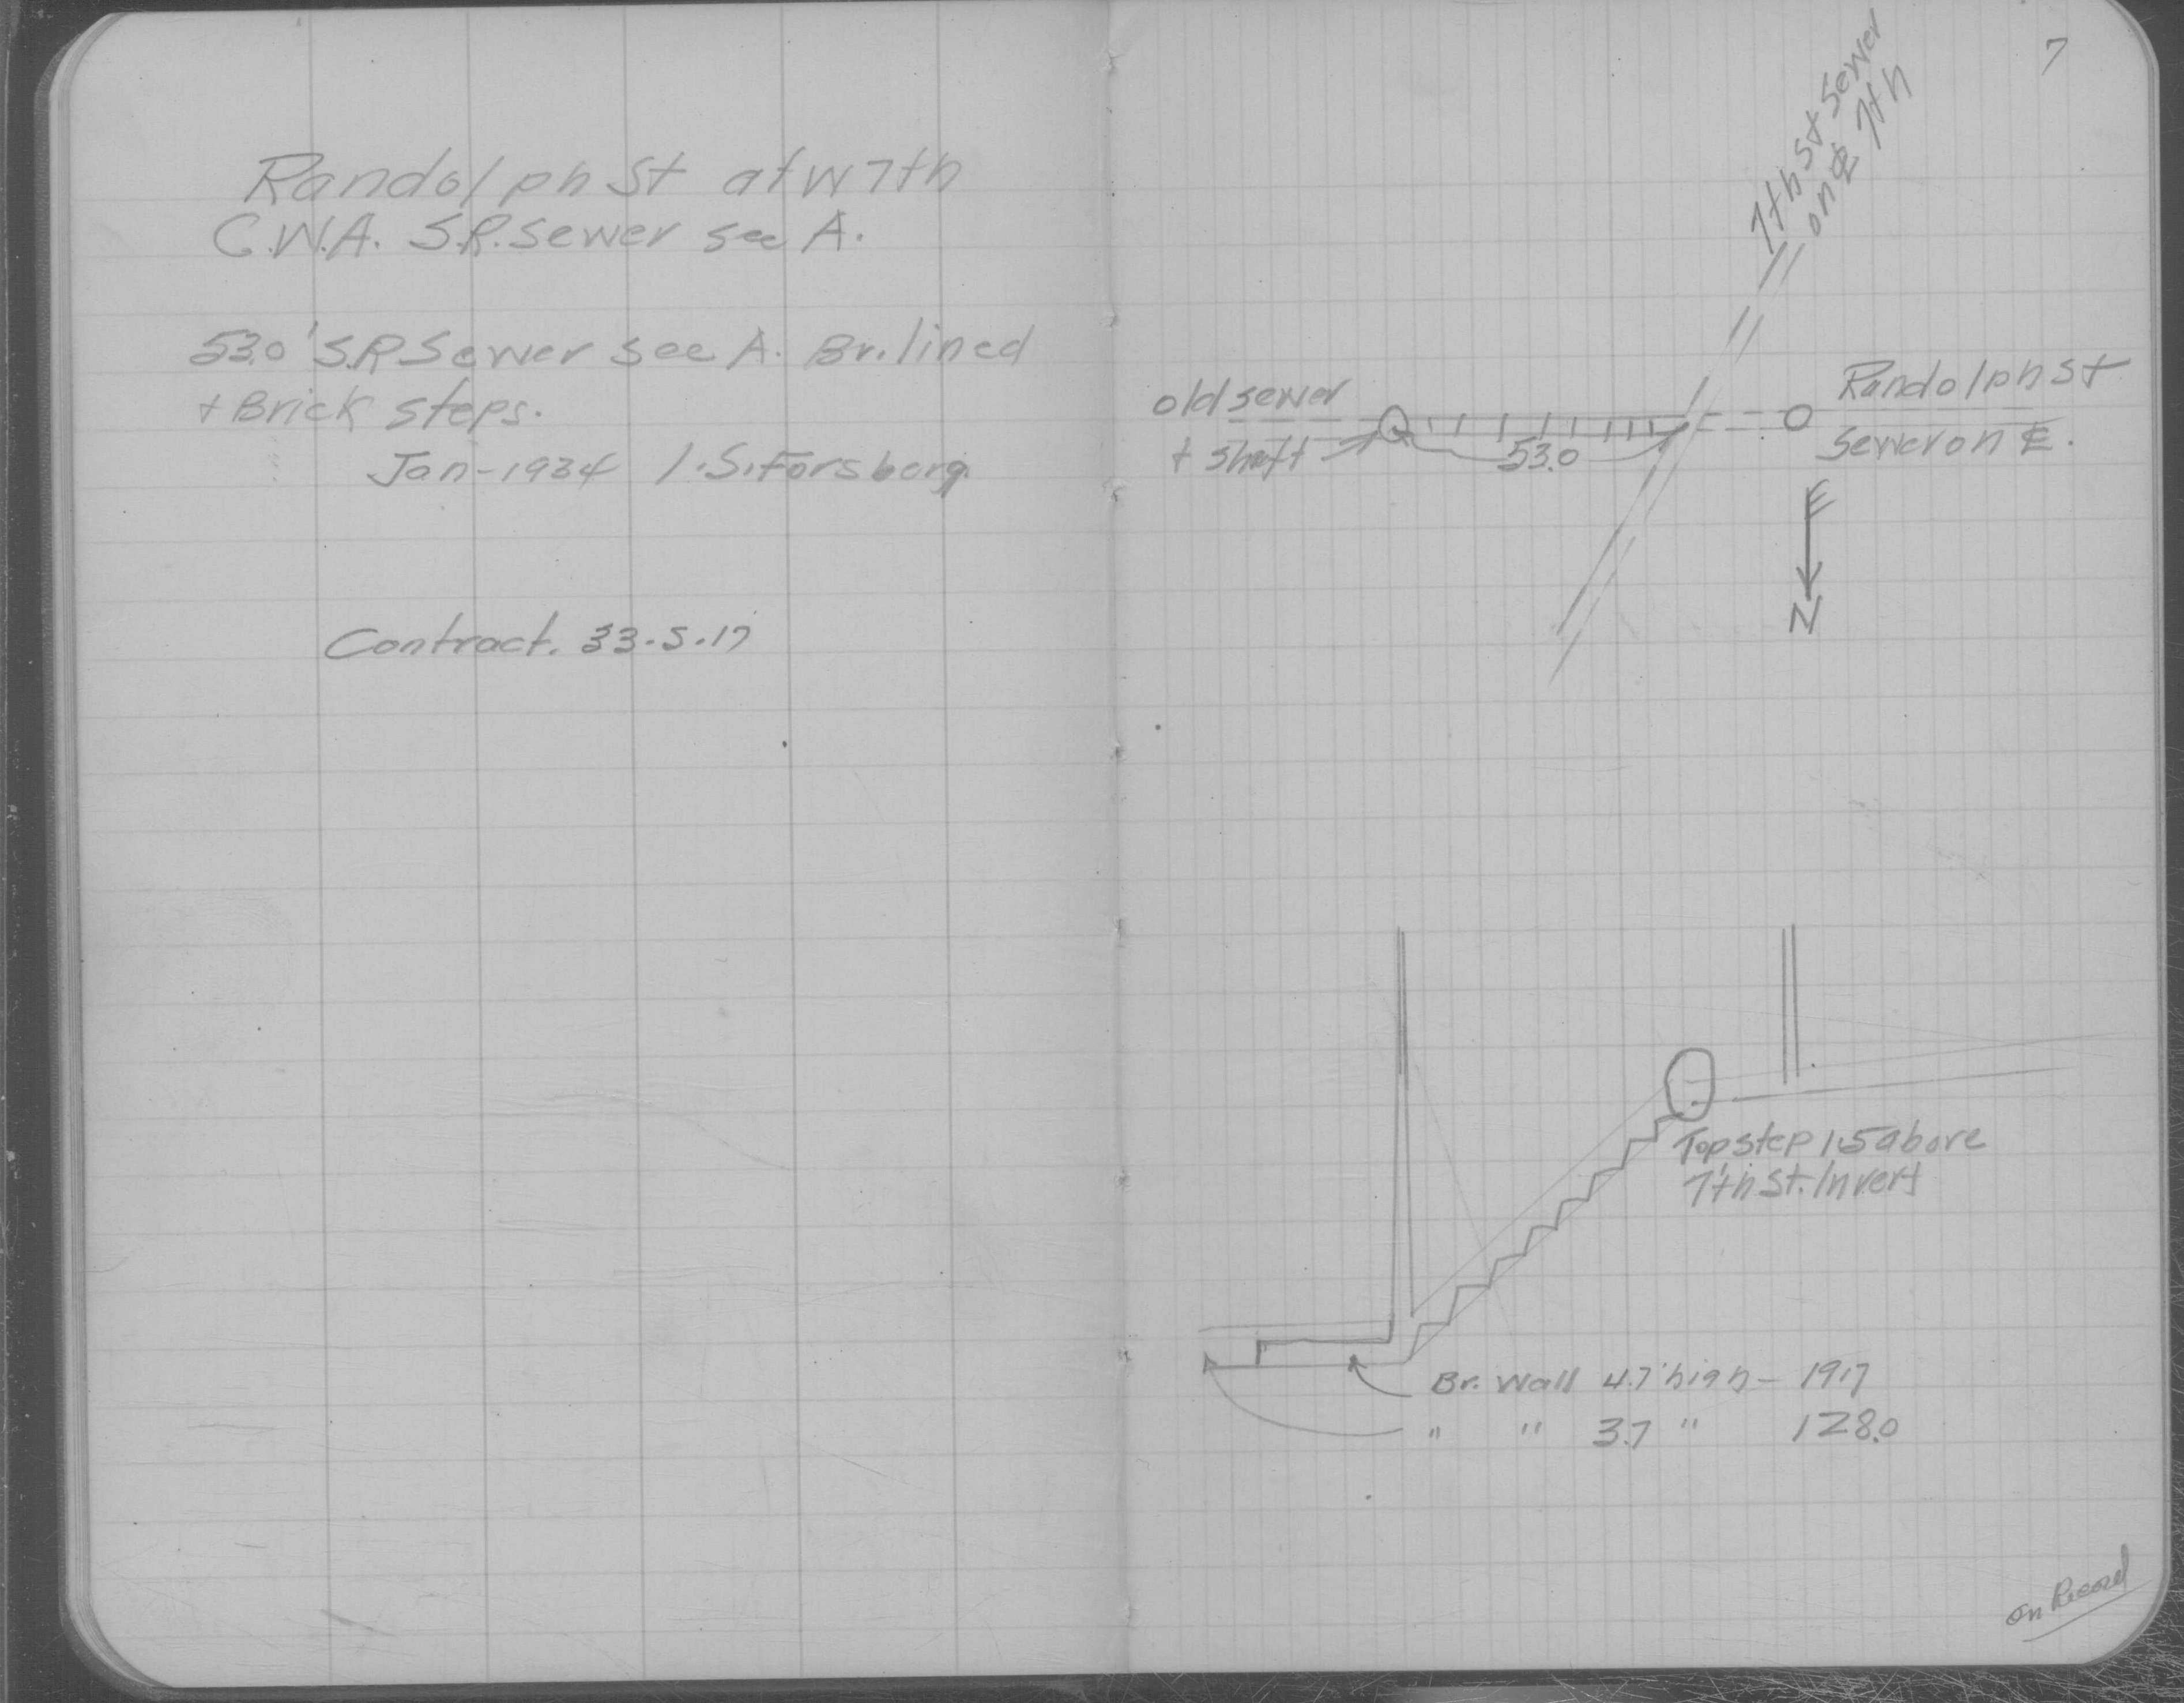 Randolph St at W 7th
C.W.A. S.R. Sewer see A.
53.0' S.R Sewer see A. Br. lined
+ Brick steps.
Jan-1934 I.S. Forsberg.
Contract. 33-S-17
7
7th St Sewer
on ℄ 7th
old sewer
+ shaft
53.0
Randolph St
Sewer on ℄.
N
Top step 1.5 above
7th St. Invert
Br. Wall 4.7' high - 191.7
" " 3.7 " 128.0
On Record